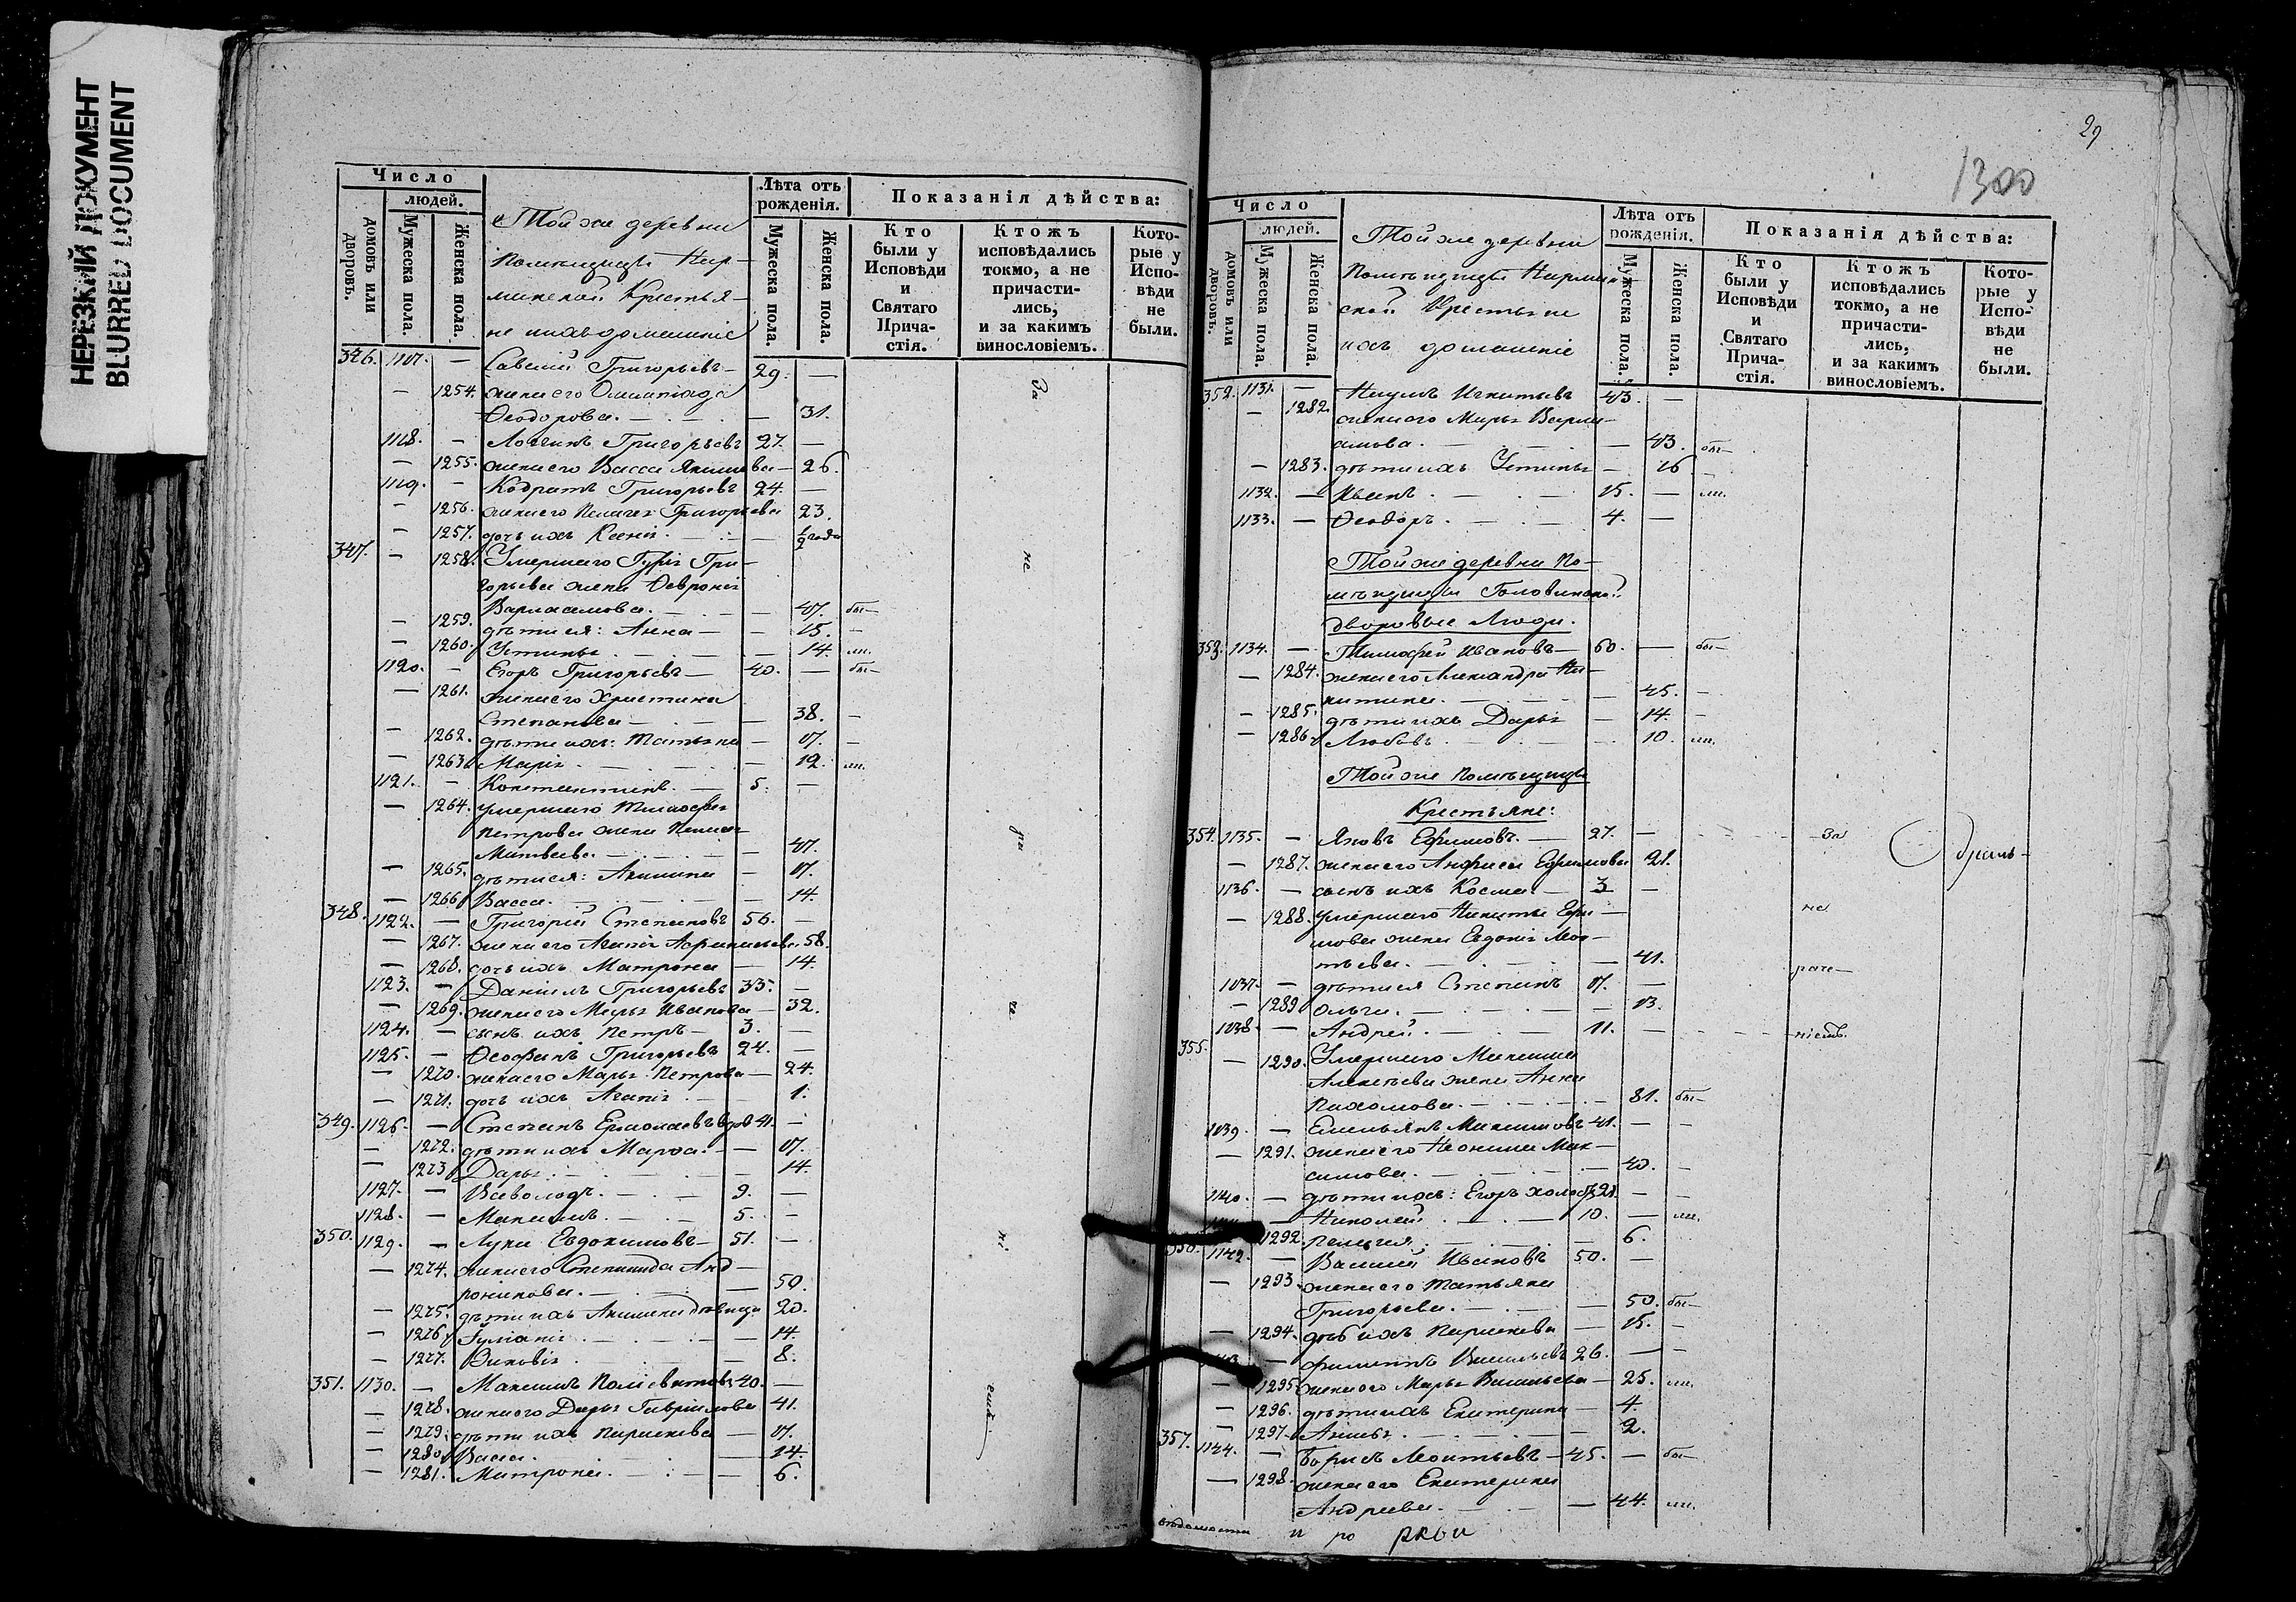 НЕРЕЗКИЙ ДОКУМЕНТ
BLURRED DOCUMENT
Число
людей.
домовъ или дворовъ.
Мужеска пола.
Женска пола.
Той же деревни
Помѣщицы
Крестья-
не ихъ домашніе
Лѣта отъ рожденія.
Мужеска пола.
Женска пола.
Показанія дѣйства:
Кто были у Исповѣди и Святаго Прича-стія.
Ктожъ исповѣдались токмо, а не причасти-лись, и за какимъ винословіемъ.
Кото-рые у Испо-вѣди не были.
346. 1117. — Савелій Григорьевъ — 29. —
— 1254. жена его Олимпіада
Ѳеодорова. — 31.
1118. — Логгинъ Григорьевъ 27. —
— 1255. жена его Васса Якимова — 26.
1119. — Кодратъ Григорьевъ 24. —
— 1256. жена его Пелагея Григорьева 23.
— 1257. дочь ихъ Ксенія. — ½ года
347. — 1258. Умершаго Гурія Гри-
горьева жена Ѳевронія
Варлаамова. — 47. бы—
— 1259. дѣти ея: Анна — 15. —
— 1260. Устинья — 14. ли.
1120. — Егоръ Григорьевъ — 40. — бы—
— 1261. жена его Христина
Степанова — 38. —
— 1262. дѣти ихъ: Татьяна — 17. —
— 1263. Марія — 12. ли.
1121. — Константинъ. — 5. —
— 1264. умершаго Тимофея
Петрова жена
Матвеева. — 47.
— 1265. дѣти ея: Акилина — 17.
— 1266. Васса. — 14.
348. 1122. — Григорій Степановъ 56. —
— 1267. жена его Агапія 58.
— 1268. дочь ихъ Матрона — 14.
1123. — Даніилъ Григорьевъ 33. —
— 1269. жена его Марья Иванова — 32.
1124. — сынъ ихъ Петръ — 3. —
1125. — Ѳеофанъ Григорьевъ 24. —
— 1270. жена его Марья Петрова — 24.
— 1271. дочь ихъ Агапія — 1.
349. 1126. — Степанъ Ермолаевъ вдов 41. —
— 1272. дѣти ихъ Марѳа. — 17.
— 1273. Дарья. — 14.
1127. — Всеволодъ. — 9. —
1128. — Максимъ. — 5. —
350. 1129. — Лука Евдокимовъ — 51. —
— 1274. жена его Степанида Анд-
роникова. — 50.
— 1275. дѣти ихъ Акилина дѣвица 20.
— 1276. Гуліанія — 14.
— 1277. Зиновія — 8.
351. 1130. — Максимъ Полієвктовъ 40. —
— 1278. жена его Дарья Гавріилова 41.
— 1279. дѣти ихъ Параскева — 17.
— 1280. Васса. — 14.
— 1281. Матрона. — 6.
За
не
ра
че
ні
емъ.
29
1300
Число
людей.
домовъ или дворовъ.
Мужеска пола.
Женска пола.
Той же деревни
Помѣщицы
ской Крестьяне
ихъ домашніе
Лѣта отъ рожденія.
Мужеска пола.
Женска пола.
Показанія дѣйства:
Кто были у Исповѣди и Святаго Прича-стія.
Ктожъ исповѣдались токмо, а не причасти-лись, и за какимъ винословіемъ.
Кото-рые у Испо-вѣди не были.
352. 1131. — Наумъ Игнатьевъ 43. —
— 1282. жена его Марья Варла-
амова. — 43. бы—
— 1283. дѣти ихъ Устинья — 16 —
1132. — Иванъ. — 15. — ли.
1133. — Ѳеодоръ. — 4. —
Той же деревни По-
мѣщицы Головиной
дворовые Люди.
353. 1134. — Тимофей Ивановъ — 60. — бы—
— 1284. жена его Александра Ни-
китина. — 45. —
— 1285. дѣти ихъ Дарья — 14. —
— 1286. Любовь. — 10. ли.
Той же Помѣщицы
Крестьяне:
354. 1135. — Яковъ Ефимовъ. — 27. — За
— 1287. жена его Анфиса Ефимова 21.
1136. — сынъ ихъ Косма. — 3 —
— 1288. умершаго Никиты Ефи-
мова жена Евдокія Меѳ-
тьева. — 41.
1137. — дѣти ея Степанъ 17. —
— 1289. Ольга. — 13.
1138. — Андрей — 11. —
не
раче—
ніемъ.
355. — 1290. Умершаго Максима
Алексѣева жена Анна
Пахомова. — 81. бы—
1139. — Емельянъ Максимовъ 41. — —
— 1291. жена его Неонила Мак-
симова. — 40. —
1140. — дѣти ихъ: Егоръ холостъ 21. — —
— Николай. — 10. — ли.
1292. Пелагея. — 6.
356. 1142. — Василій Ивановъ 50. —
— 1293. жена его Татьяна
Григорьева. — 50. бы—
— 1294. дочь ихъ Параскева — 15. —
— Филиппъ Васильевъ 26. — —
— 1295. жена его Марья Васильева — 25. ли.
— 1296. дѣти ихъ Екатерина — 4.
— 1297. Анисья. — 2.
357. 1144. — Борисъ Леонтьевъ — 45. — бы—
— 1298. жена его Екатерина
Андреева. — 44. ли.